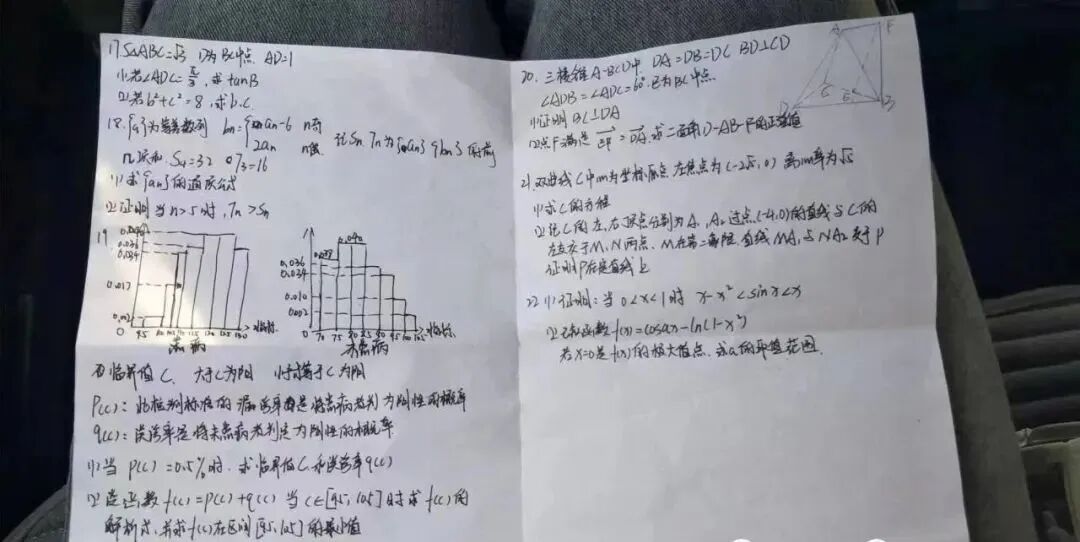 17. S△ABC=√3 D为BC中点 AD=1
(1)若∠ADC=π/3,求tanB
(2)若b²+c²=8,求b.c.
18.{an}为等差数列 bn={an-6 n奇
2an n偶 记Sn Tn为{an}{bn}的前
n项和 S4=32 T3=16
(1)求{an}的通项公式
(2)证明 当n>5时,Tn>Sn
19.
0.036
0.034
0.002
0
95 100 105 110 115 120 125 130 指标
患病
0.040
0.036
0.034
0.010
0.002
0
70 75 80 85 90 95 100 105 指标
未患病
临界值C, 大于C为阳 小于等于C为阴
P(c): 此检测标准的漏诊率是将患病者判为阴性的概率
q(c): 误诊率是将未患病者判定为阳性的概率
(1)当 P(c)=0.5%时.求临界值C和误诊率q(c)
(2)设函数f(c)=p(c)+q(c) 当c∈[95,105]时求f(c)的
解析式,并求f(c)在区间[95,105]的最小值
20. 三棱锥A-BCD中 DA=DB=DC BD⊥CD
∠ADB=∠ADC=60° E为BC中点
(1)证明BC⊥DA
(2)点F满足 EF=DA.求二面角D-AB-F的正弦值
A F
D B
E
21.双曲线C中心为坐标原点 左焦点为(-2√5,0) 离心率为√5
(1)求C的方程
(2)记C的左、右顶点分别为A₁,A₂ 过点(-4,0)的直线与C的
左支交于M,N两点. M在第二象限 直线MA₁与NA₂交于P
证明P在定直线上
22 (1)证明:当0<x<1时 x-x²<sinx<x
(2)已知函数f(x)=cosax-ln(1-x²)
若x=0是f(x)的极大值点.求a的取值范围.